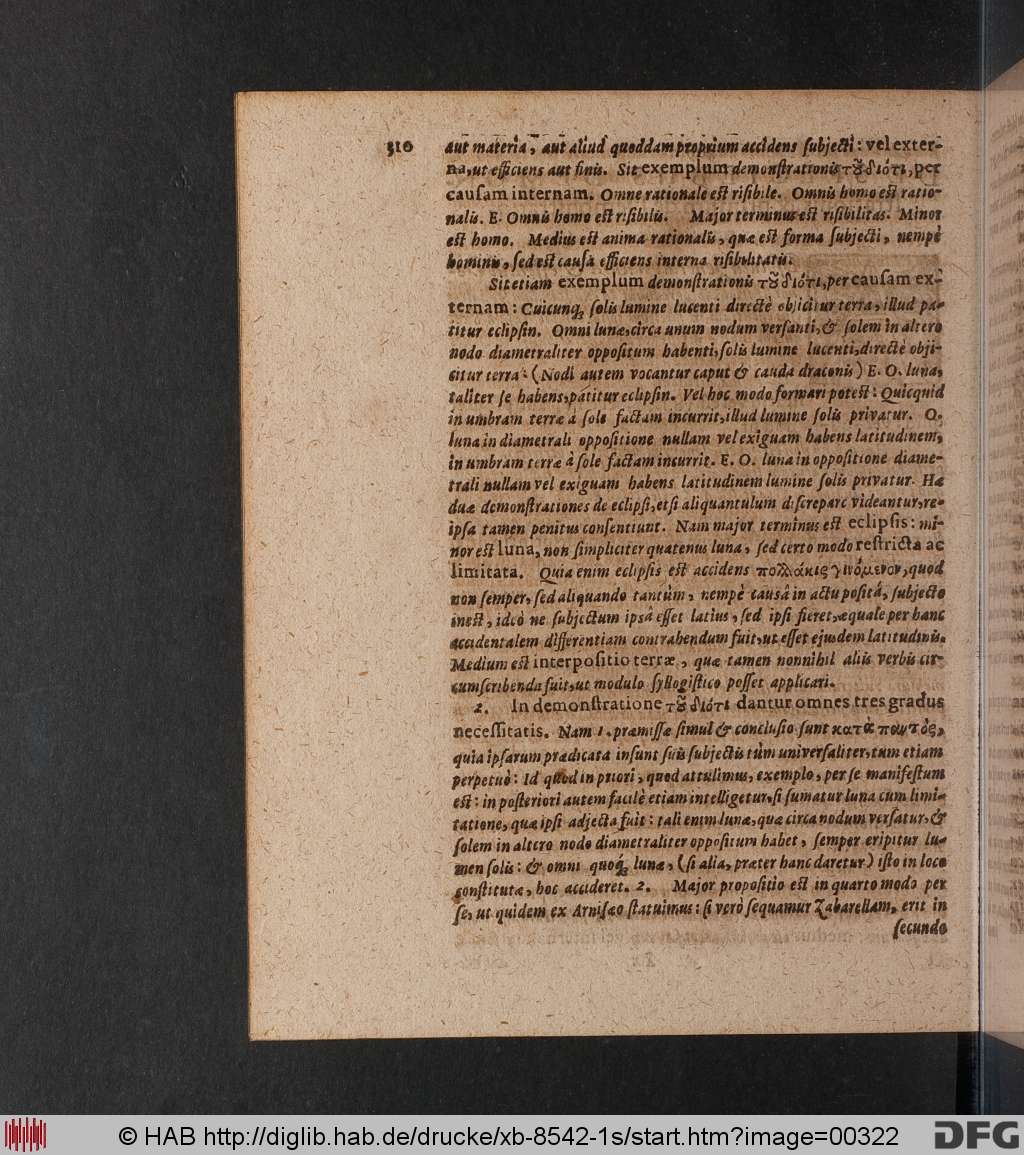 310
aut materia, aut aliud quoddam proprium accidens ſubjecti: vel exter-
na, ut efficiens aut finis. Sit exemplum demonſtrationis τοῦ διότι, per
cauſam internam. Omne rationale eſt riſibile. Omnis homo eſt ratio-
nalis. E. Omnis homo eſt riſibilis. Major terminus eſt riſibilitas. Minor
eſt homo. Medius eſt anima rationalis, quæ eſt forma ſubjecti, nempè
hominis, ſed eſt cauſa efficiens interna riſibilitatis.
Sit etiam exemplum demonſtrationis τοῦ διότι, per cauſam ex-
ternam: Cuicunq; ſolis lumine lucenti directè objicitur terra, illud pa-
titur eclipſin. Omni lunæ, circa unum nodum verſanti, & ſolem in altero
nodo diametraliter oppoſitum habenti, ſolis lumine lucenti, directè obji-
citur terra: (Nodi autem vocantur caput & cauda draconis) E. O. luna,
taliter ſe habens, patitur eclipſin. Vel hoc modo formari poteſt: Quicquid
in umbram terræ à ſole factam incurrit, illud lumine ſolis privatur. O.
luna in diametrali oppoſitione nullam vel exiguam habens latitudinem,
in umbram terræ à ſole factam incurrit. E. O. luna in oppoſitione diame-
trali nullam vel exiguam habens latitudinem lumine ſolis privatur. Hæ
duæ demonſtrationes de eclipſi, etſi aliquantulum diſcrepare videantur, re-
ipſa tamen penitus conſentiunt. Nam major terminus eſt eclipſis: mi-
nor eſt luna, non ſimpliciter quatenus luna, ſed certo modo reſtricta ac
limitata. Quia enim eclipſis eſt accidens πολλάκις γινόμενον, quod
non ſemper, ſed aliquando tantùm, nempè causâ in actu poſitâ, ſubjecto
ineſt, ideò ne ſubjectum ipsâ eſſet latius, ſed ipſi fieret, æquale per hanc
accidentalem differentiam contrahendum fuit, ut eſſet ejusdem latitudinis.
Medium eſt interpoſitio terræ, quæ tamen nonnihil aliis verbis cir-
cumſcribenda fuit, ut modulo ſyllogiſtico poſſet applicari.
2. In demonſtratione τοῦ διότι dantur omnes tres gradus
neceſſitatis. Nam 1. præmiſſæ ſimul & concluſio ſunt κατὰ παντὸς,
quia ipſarum prædicata inſunt ſuis ſubjectis tùm univerſaliter, tum etiam
perpetuò: Id quod in priori, quod attulimus, exemplo, per ſe manifeſtum
eſt: in poſteriori autem facilè etiam intelligetur, ſi ſumatur luna cum limi-
tatione, quæ ipſi adjecta fuit: tali enim lunæ, quæ circa nodum verſatur, &
ſolem in altero nodo diametraliter oppoſitum habet, ſemper eripitur lu-
men ſolis: & omni quoq; lunæ, (ſi alia, præter hanc daretur) iſto in loco
conſtitutæ, hoc accideret. 2. Major propoſitio eſt in quarto modo per
ſe, ut quidem ex Arniſæo ſtatuimus: ſi verò ſequamur Zabarellam, erit in
ſecundo
© HAB http://diglib.hab.de/drucke/xb-8542-1s/start.htm?image=00322
DFG